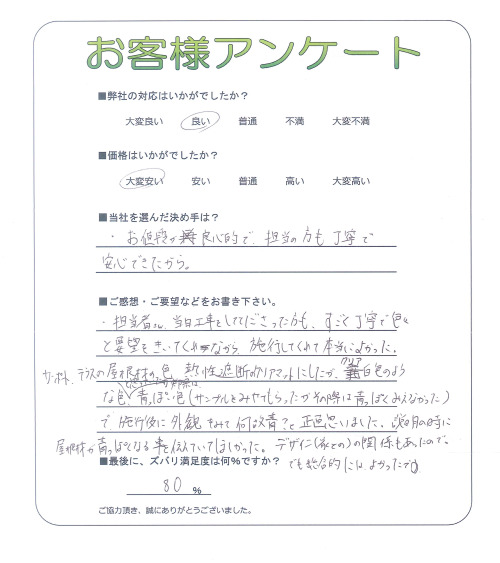 お客様アンケート
■弊社の対応はいかがでしたか？
大変良い 良い 普通 不満 大変不満
■価格はいかがでしたか？
大変安い 安い 普通 高い 大変高い
■当社を選んだ決め手は？
・お値段が良心的で、担当の方も丁寧で
安心できたから。
■ご感想・ご要望などをお書き下さい。
・担当者さん、当日工事をしてくださった方も、すごく丁寧で色々
と要望をきいてくれながら、施行してくれて本当によかった。
テラスの屋根材の色、熱性遮断のクリアマットにしたが、クリア白色のよう
な色、青っぽい色(サンプルをみせてもらったがその際は青っぽくみえなかった)
で施行後に外観をみて何故青？と正直思いました。説明の時に
屋根材が青っぽくなる事を伝えていてほしかった。デザイン(家との)の関係もあったので。
■最後に、ズバリ満足度は何％ですか？ でも総合的にはよかったです
80 ％
ご協力頂き、誠にありがとうございました。